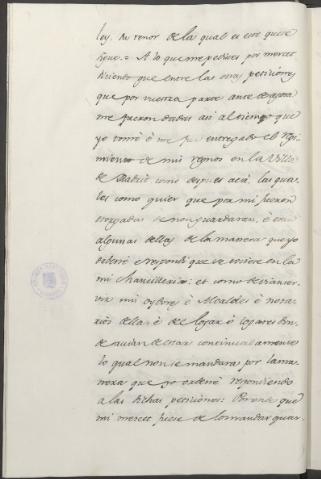 ley. Su tenor de la qual es este que se
sigue. = A lo que me pedistes por merced
diciendo que entre las otras peticiones
que por vuestra parte ante de agora
me fueron dadas asi al tiempo que
yo tomé é me fue entregado el Regi-
miento de mis reynos en la Villa
de Madrid como despues acá, las qua-
les como quier que por mi fueron
otorgadas se non guardaron, é en
algunas dellas de la manera que yo
ordené é respondi que se toviese en la
mi Chancilleria: et como devian ser-
vir mis oydores é Alcaldes é nota-
rios della: é del logar ó logares don-
de avian de estar continuadamente
lo qual non se mandara por la ma-
nera que yo ordené respondiendo
a las dichas peticiones: Porende que
mi merced fuese de lo mandar guar-